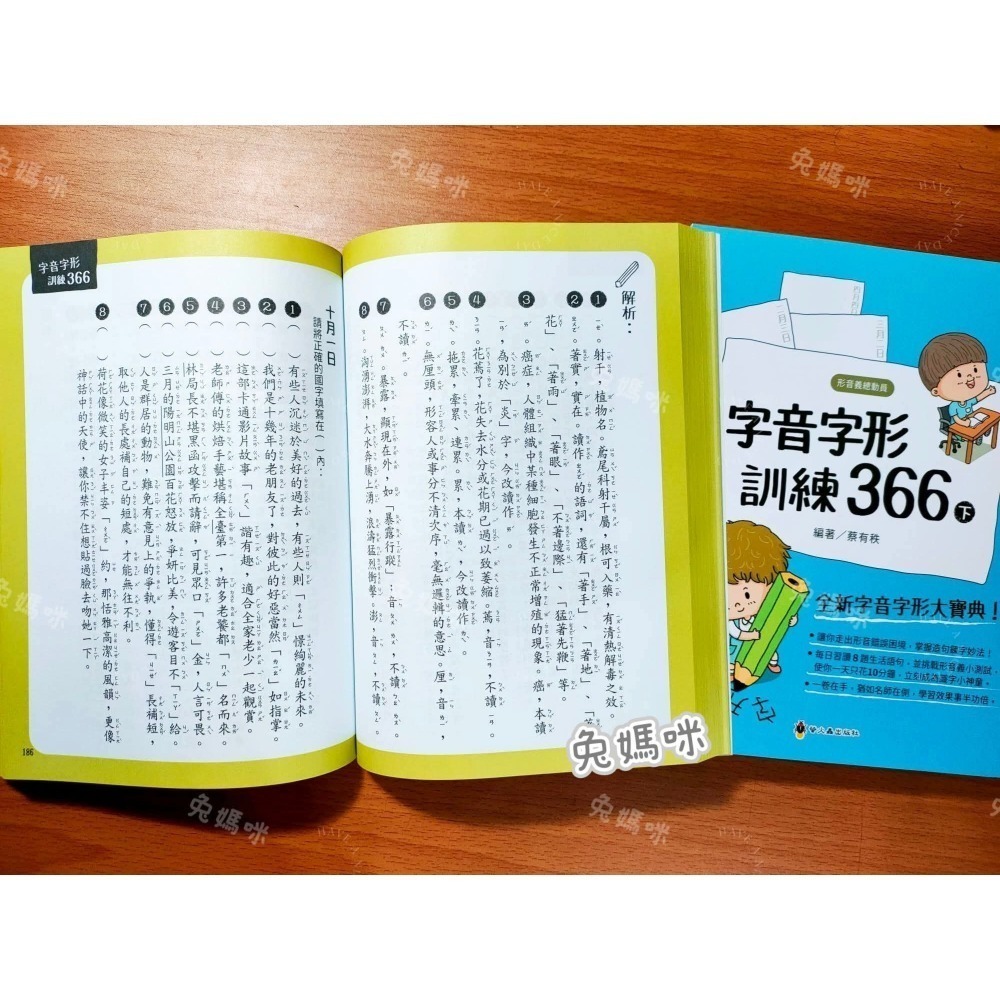 兔媽咪
字音字形
訓練366
解析：
❶ 射干，植物名。鳶尾科射干屬，根可入藥，有清熱解毒之效。
❷ 著實，實在。讀作ㄓㄨㄛˊ的語詞，還有「著手」、「著地」、「著
花」、「著雨」、「著眼」、「不著邊際」、「猛著先鞭」等。
❸ 癌症，人體組織中某種細胞發生不正常增殖的現象。癌，本讀
ㄧㄢˊ，為別於「炎」字，今改讀作ㄞˊ。
❹ 花蔫了，花失去水分或花期已過以致萎縮。蔫，音ㄋㄧㄢ，不讀ㄧㄢ。
❺ 拖累，牽累、連累。累，本讀ㄌㄟˋ，今改讀作ㄌㄟˇ。
❻ 無厘頭，形容人或事分不清次序，毫無邏輯的意思。厘，音ㄌㄧˊ，
不讀
❼ 暴露，顯現在外，如「暴露行蹤」；音ㄆㄨˋ，不讀ㄅㄠˋ。
❽ 洶湧澎湃，大水奔騰上湧，浪濤猛烈衝擊。澎，音ㄆㄥ，不讀ㄆㄥˊ。
十月一日
請將正確的國字填寫在（ ）內：
❶（ ）有些人沉迷於美好的過去，有些人則「ㄔㄨㄥ」憬絢麗的未來。
❷（ ）我們是十幾年的老朋友了，對彼此的好惡當然「ㄌㄧㄠˇ」如指掌。
❸（ ）這部卡通影片故事「ㄏㄨㄟ」諧有趣，適合全家老少一起觀賞。
❹（ ）老師傅的烘焙手藝堪稱全臺第一，許多老饕都「ㄇㄨˋ」名而來。
❺（ ）林局長不堪黑函攻擊而請辭，可見眾口「ㄕㄨㄛˋ」金，人言可畏。
❻（ ）三月的陽明山公園百花怒放，爭妍比美，令遊客目不「ㄒㄧㄚˊ」給。
❼（ ）人是群居的動物，難免有意見上的爭執，懂得「ㄐㄩㄝˊ」長補短，
取他人的長處補自己的短處，才能無往不利。
❽（ ）荷花像微笑的女子丰姿「ㄔㄨㄛˋ」約，那恬雅高潔的風韻，更像
神話中的天使，讓你禁不住想貼過臉去吻她一下。
186
形音義總動員
字音字形
訓練366下
編著／蔡有秩
全新字音字形大寶典！
•讓你走出形音錯誤困境，掌握造句鍊字妙法！
•每日習讀8題生活語句，並挑戰形音義小測試，
使你一天只花10分鐘，立刻成為識字小神童。
•一卷在手，猶如名師在側，學習效果事半功倍。
螢火蟲出版社
兔媽咪